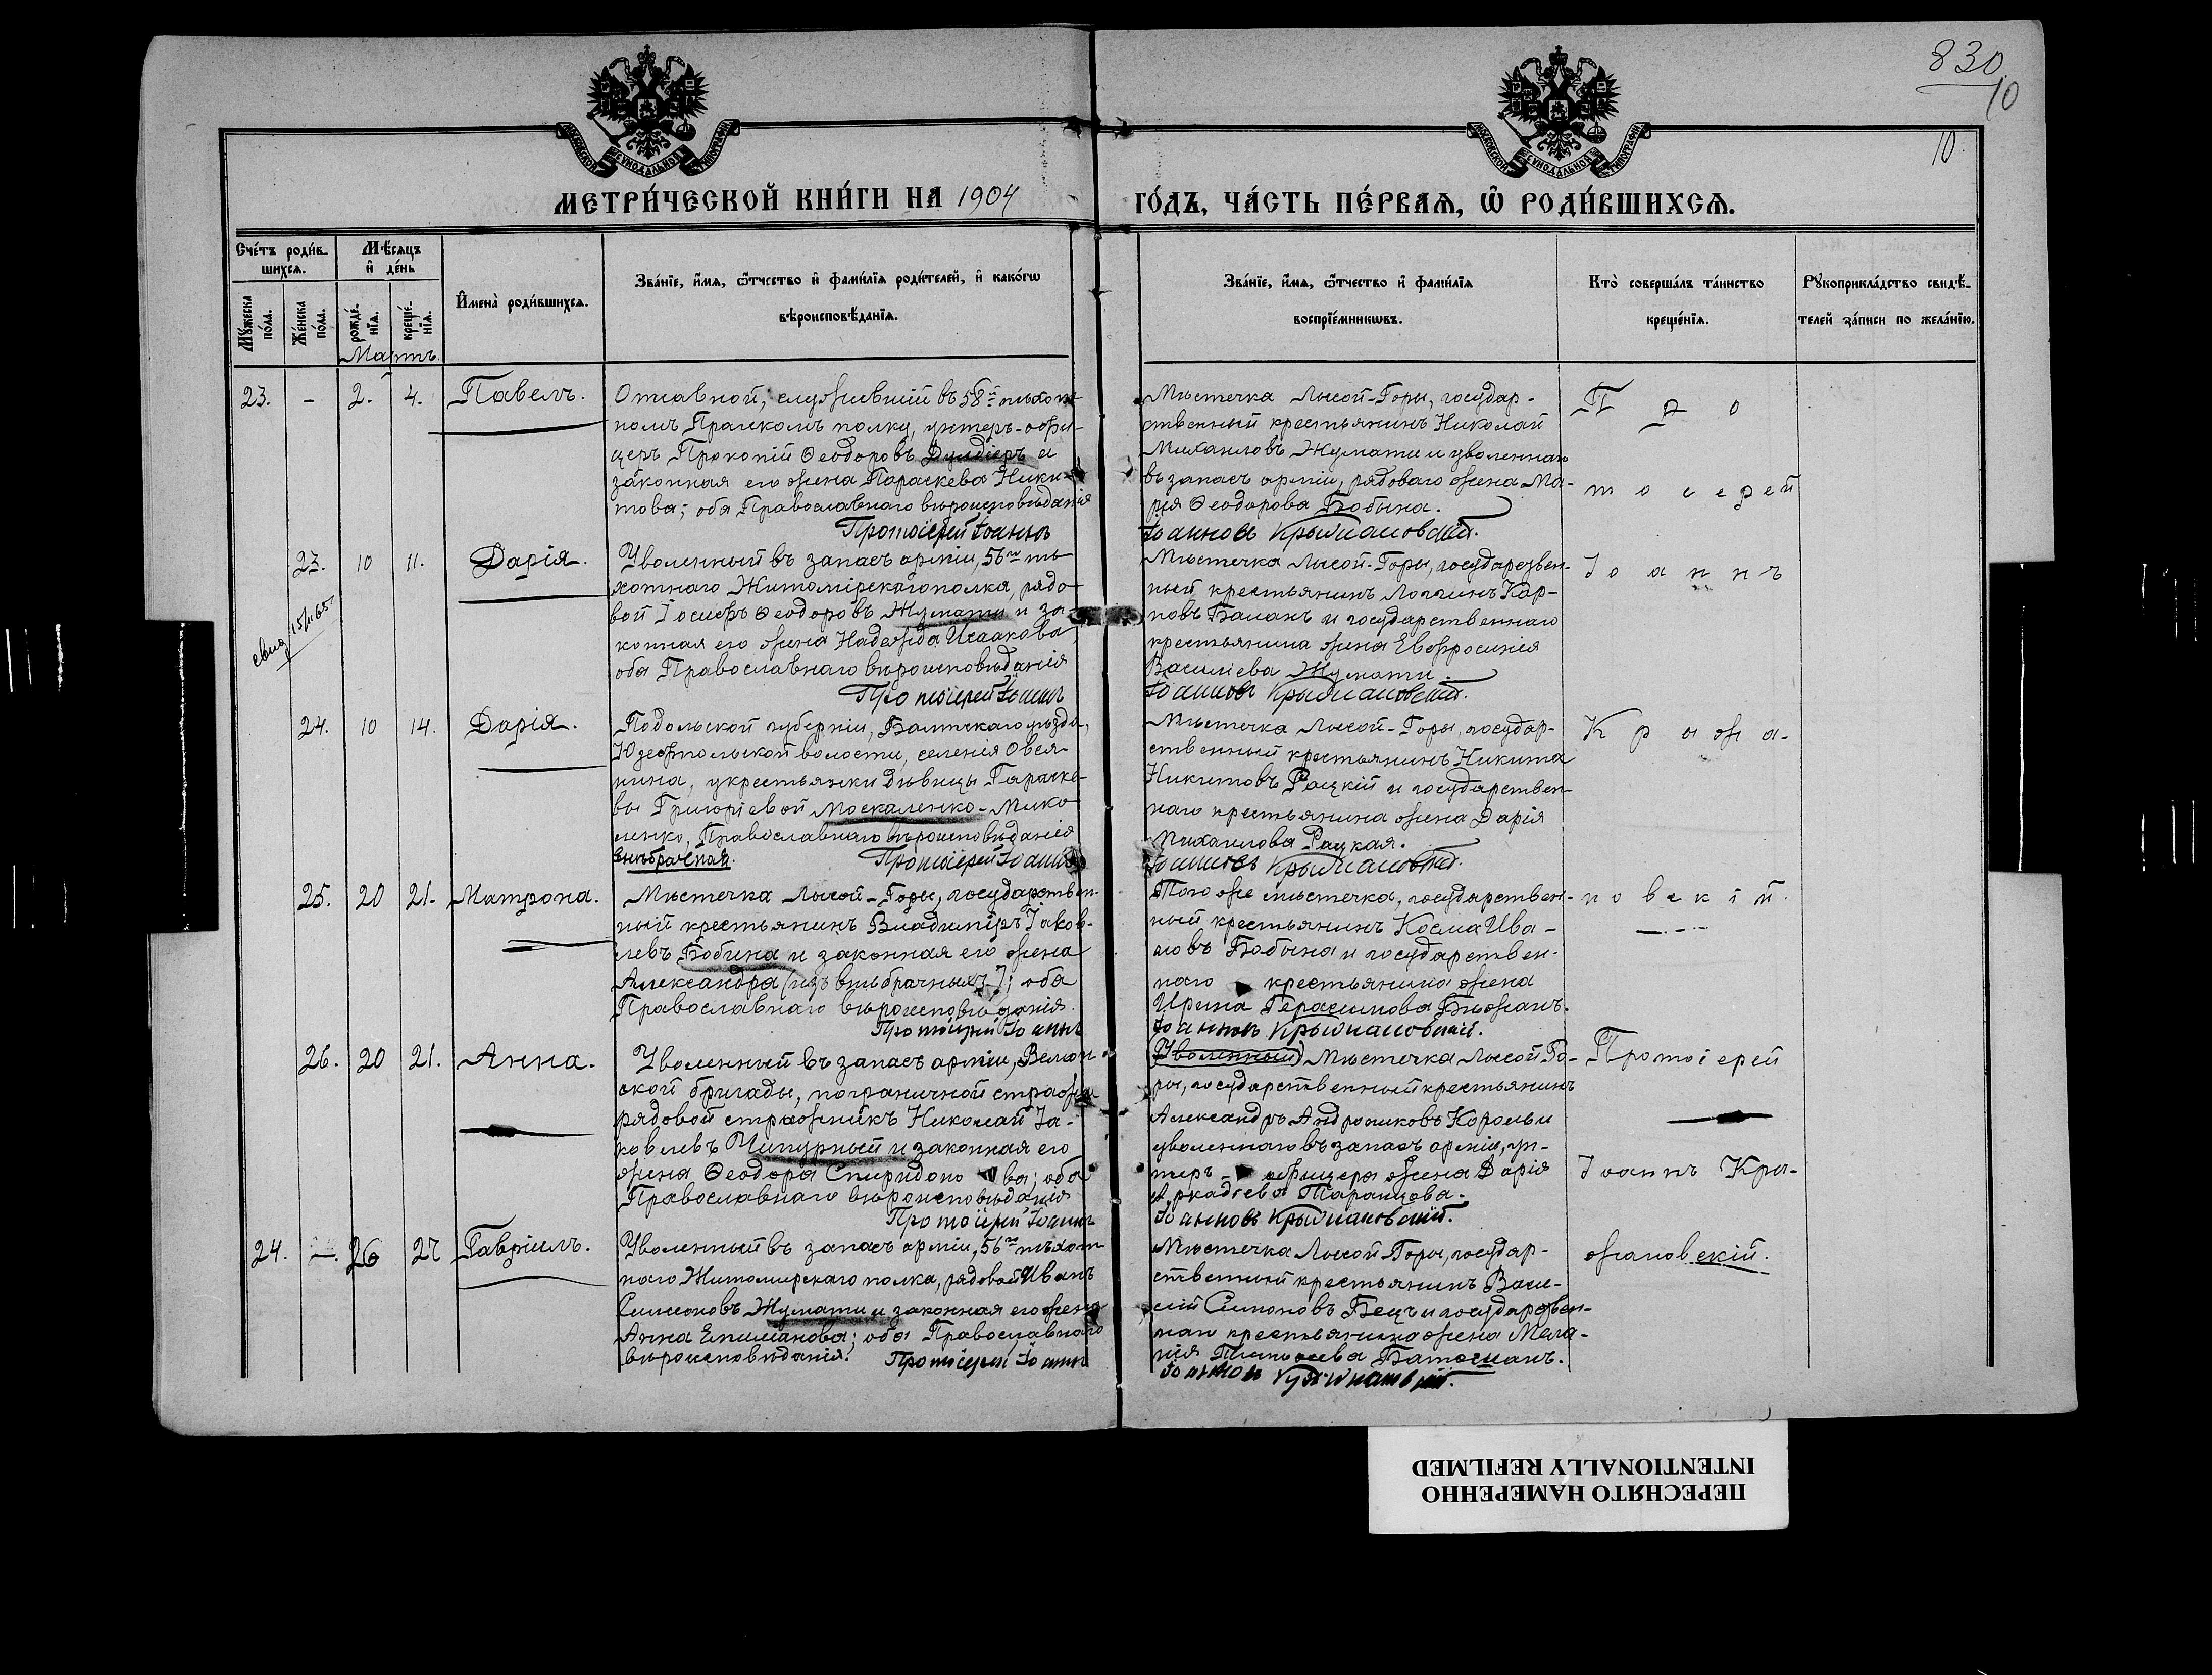 830
10
10
МОСКОВСКОЙ СУНОДАЛЬНОЙ ТИПОГРАФІИ
МОСКОВСКОЙ СУНОДАЛЬНОЙ ТИПОГРАФІИ
МЕТРИ́ЧЕСКОЙ КНИ́ГИ НА 1904
ГО́ДЪ, ЧА́СТЬ ПЕ́РВАѦ, Ѡ РОДИ́ВШИХСѦ.
Сче́тъ роди́в-
шихсѧ.
Мꙋ́жеска
по́ла.
Же́нска
по́ла.
Мѣ́сѧцъ
и҆ де́нь
рожде́-
нїѧ.
креще́-
нїѧ.
Мартъ.
И҆мена̀ роди́вшихсѧ.
Зва́нїе, и҆́мѧ, ѻ҆́тчество и҆ фами́лїѧ роди́телей, и҆ како́гѡ
вѣроисповѣ́данїѧ.
Зва́нїе, и҆́мѧ, ѻ҆́тчество и҆ фами́лїѧ
воспрїе́мникѡвъ.
Кто̀ соверша́лъ та́инство
креще́нїѧ.
Рꙋкоприкла́дство свидѣ́-
телей за́писи по жела́нїю.
23. - 2. 4. Павелъ.
Отставной, служившій въ 58й пѣхот
номъ Пражскомъ полку, унтеръ-офи
церъ Прокопій Ѳеодоровъ и
законная его жена Параскева Ники-
това; оба Православнаго вѣроисповѣданія
Протоіерей Іоаннъ
Мѣстечка Лысой-Горы, государ-
ственный крестьянинъ Николай
Михаиловъ Жумати и уволеннаго
въ запасъ арміи, рядового жена Ма-
рія Ѳеодорова Бобына.
Іоанновъ Крыжановскій.
П р о
т о і е р е й
23. 10 11. Дарія.
15/II 65.
Уволенный въ запасъ арміи, 56го пѣ
хотнаго Житомірскаго полка, рядо-
вой Іосифъ Ѳеодоровъ Жумати и за
конная его жена Надежда Исаакова
оба Православнаго вѣроисповѣданія
Протоіерей Іоаннъ
Мѣстечка Лысой-Горы, государствен-
ный крестьянинъ Логгинъ Кар-
повъ Баланъ и государственнаго
крестьянина жена Евфросинія
Василіева Жумати.
Іоанновъ Крыжановскій.
І о а н н ъ
24. 10 14. Дарія.
Подольской губерніи, Балтскаго уѣзда,
Юзефпольской волости, селенія Овся-
ника, у крестьянки дѣвицы Параске-
вы Григоріевой Москаленко-Мико
ленко, Православнаго вѣроисповѣданія
внѣбрачная. Протоіерей Іоаннъ
Мѣстечка Лысой-Горы, государ-
ственный крестьянинъ Никита
Никитовъ Рацкій и государствен-
наго крестьянина жена Дарія
Михаилова Рацкая.
Іоанновъ Крыжановскій.
К р ы ж а-
25. 20 21. Матрона.
Мѣстечка Лысой-Горы, государствен-
ный крестьянинъ Владиміръ Іаков-
левъ Бобына и законная его жена
Александра (изъ внѣбрачныхъ); оба
Православнаго вѣроисповѣданія.
Протоіерей Іоаннъ
Того же мѣстечка, государствен-
ный крестьянинъ Косма Ива-
новъ Бобына и государствен-
наго крестьянина жена
Ирина Герасимова Бѣжанъ.
Іоанновъ Крыжановскій.
н о в с к і й.
26. 20 21. Анна.
Уволенный въ запасъ арміи,
ской бригады, пограничной стражи
рядовой стражникъ Николай Іа-
ковлевъ Чипурный и законная его
жена Ѳеодора Спиридоно ва; оба
Православнаго вѣроисповѣданія
Протоіерей Іоаннъ
(Уволенный) Мѣстечка Лысой Го-
ры, государственный крестьянинъ
Александръ Андрониковъ Король и
уволеннаго въ запасъ арміи, ун-
теръ-офицера жена Дарія
Аркадіева Таранцова.
Іоанновъ Крыжановскій.
Протоіерей
Іоаннъ Кры-
24. - 26 27 Гавріилъ.
Уволенный въ запасъ арміи, 56го пѣхот
наго Житомирскаго полка, рядовой Иванъ
Симеоновъ Жумати и законная его жена
Анна Епифанова; оба Православнаго
вѣроисповѣданія. Протоіерей Іоаннъ
Мѣстечка Лысой-Горы, государ-
ственный крестьянинъ Васи-
лій Симоновъ Бецъ и государствен-
наго крестьянина жена Мела-
нія
Іоанновъ Крыжановскій.
жановскій.
ПЕРЕСНЯТО НАМЕРЕННО
INTENTIONALLY REFILMED